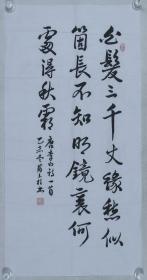 白髮三千丈緣愁似
箇長不知明鏡裏何
處得秋霜
唐李白詩一首
乙未冬